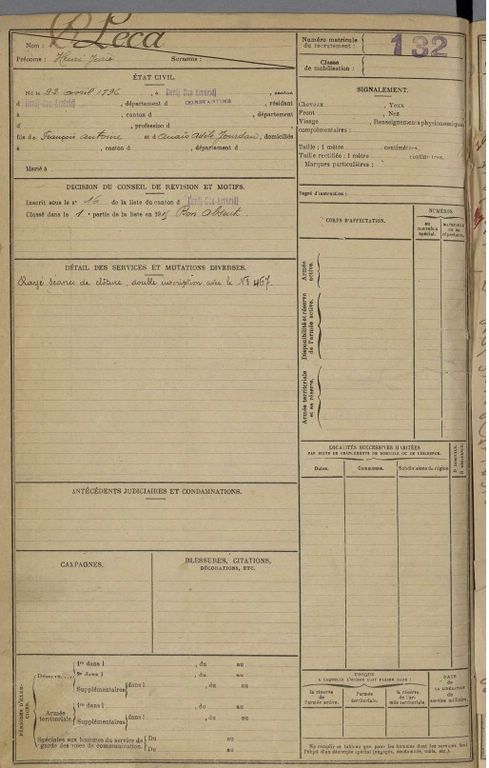 Nom : Leca
Prénoms : Henri Jean Surnoms :
ÉTAT CIVIL.
Né le 22 avril 1896, à Bordj-Bou-Arréridj, canton
d Bordj-Bou-Arréridj, département d CONSTANTINE, résidant
à , canton d , département
d , profession d
fils de François Antoine et d Anaïs Adèle Jourdan, domiciliés
à , canton d , département d
Marié à
DÉCISION DU CONSEIL DE RÉVISION ET MOTIFS.
Inscrit sous le n° 16 de la liste du canton d Bordj-Bou-Arréridj
Classé dans la 1e partie de la liste en 1915 Bon absent
DÉTAIL DES SERVICES ET MUTATIONS DIVERSES.
Rayé séance de clôture, double inscription avec le N° 467.
ANTÉCÉDENTS JUDICIAIRES ET CONDAMNATIONS.
CAMPAGNES.
BLESSURES, CITATIONS,
DÉCORATIONS, ETC.
PÉRIODES D'EXERCICES.
Réserve
1re dans l , du au
2e dans l , du au
Supplémentaires dans l , du au
Armée territoriale.
1re dans l , du au
Supplémentaires dans l , du au
Spéciales aux hommes du service de garde des voies de communication.
Du au
Du au
Numéro matricule
du recrutement :
132
Classe
de mobilisation :
SIGNALEMENT.
Cheveux Yeux
Front Nez
Visage , Renseignements physionomiques
complémentaires :
Taille : 1 mètre centimètres.
Taille rectifiée : 1 mètre centimètres.
Marques particulières :
Degré d'instruction :
CORPS D'AFFECTATION.
NUMÉROS
au contrôle spécial.
matricule ou au répertoire.
Armée active.
Disponibilité et réserve de l'armée active.
Armée territoriale et sa réserve.
LOCALITÉS SUCCESSIVES HABITÉES
PAR SUITE DE CHANGEMENTS DE DOMICILE OU DE RÉSIDENCE.
Dates. Communes. Subdivisions de région
D. DOMICILE.
R. RÉSIDENCE.
ÉPOQUE
À LAQUELLE L'HOMME DOIT PASSER DANS :
la réserve de l'armée active.
l'armée territoriale.
la réserve de l'armée territoriale.
DATE
de
LA LIBÉRATION
du
service militaire.
Ne remplir ce tableau que pour les hommes dont les services font
l'objet d'un décompte spécial (engagés, omis, etc.).